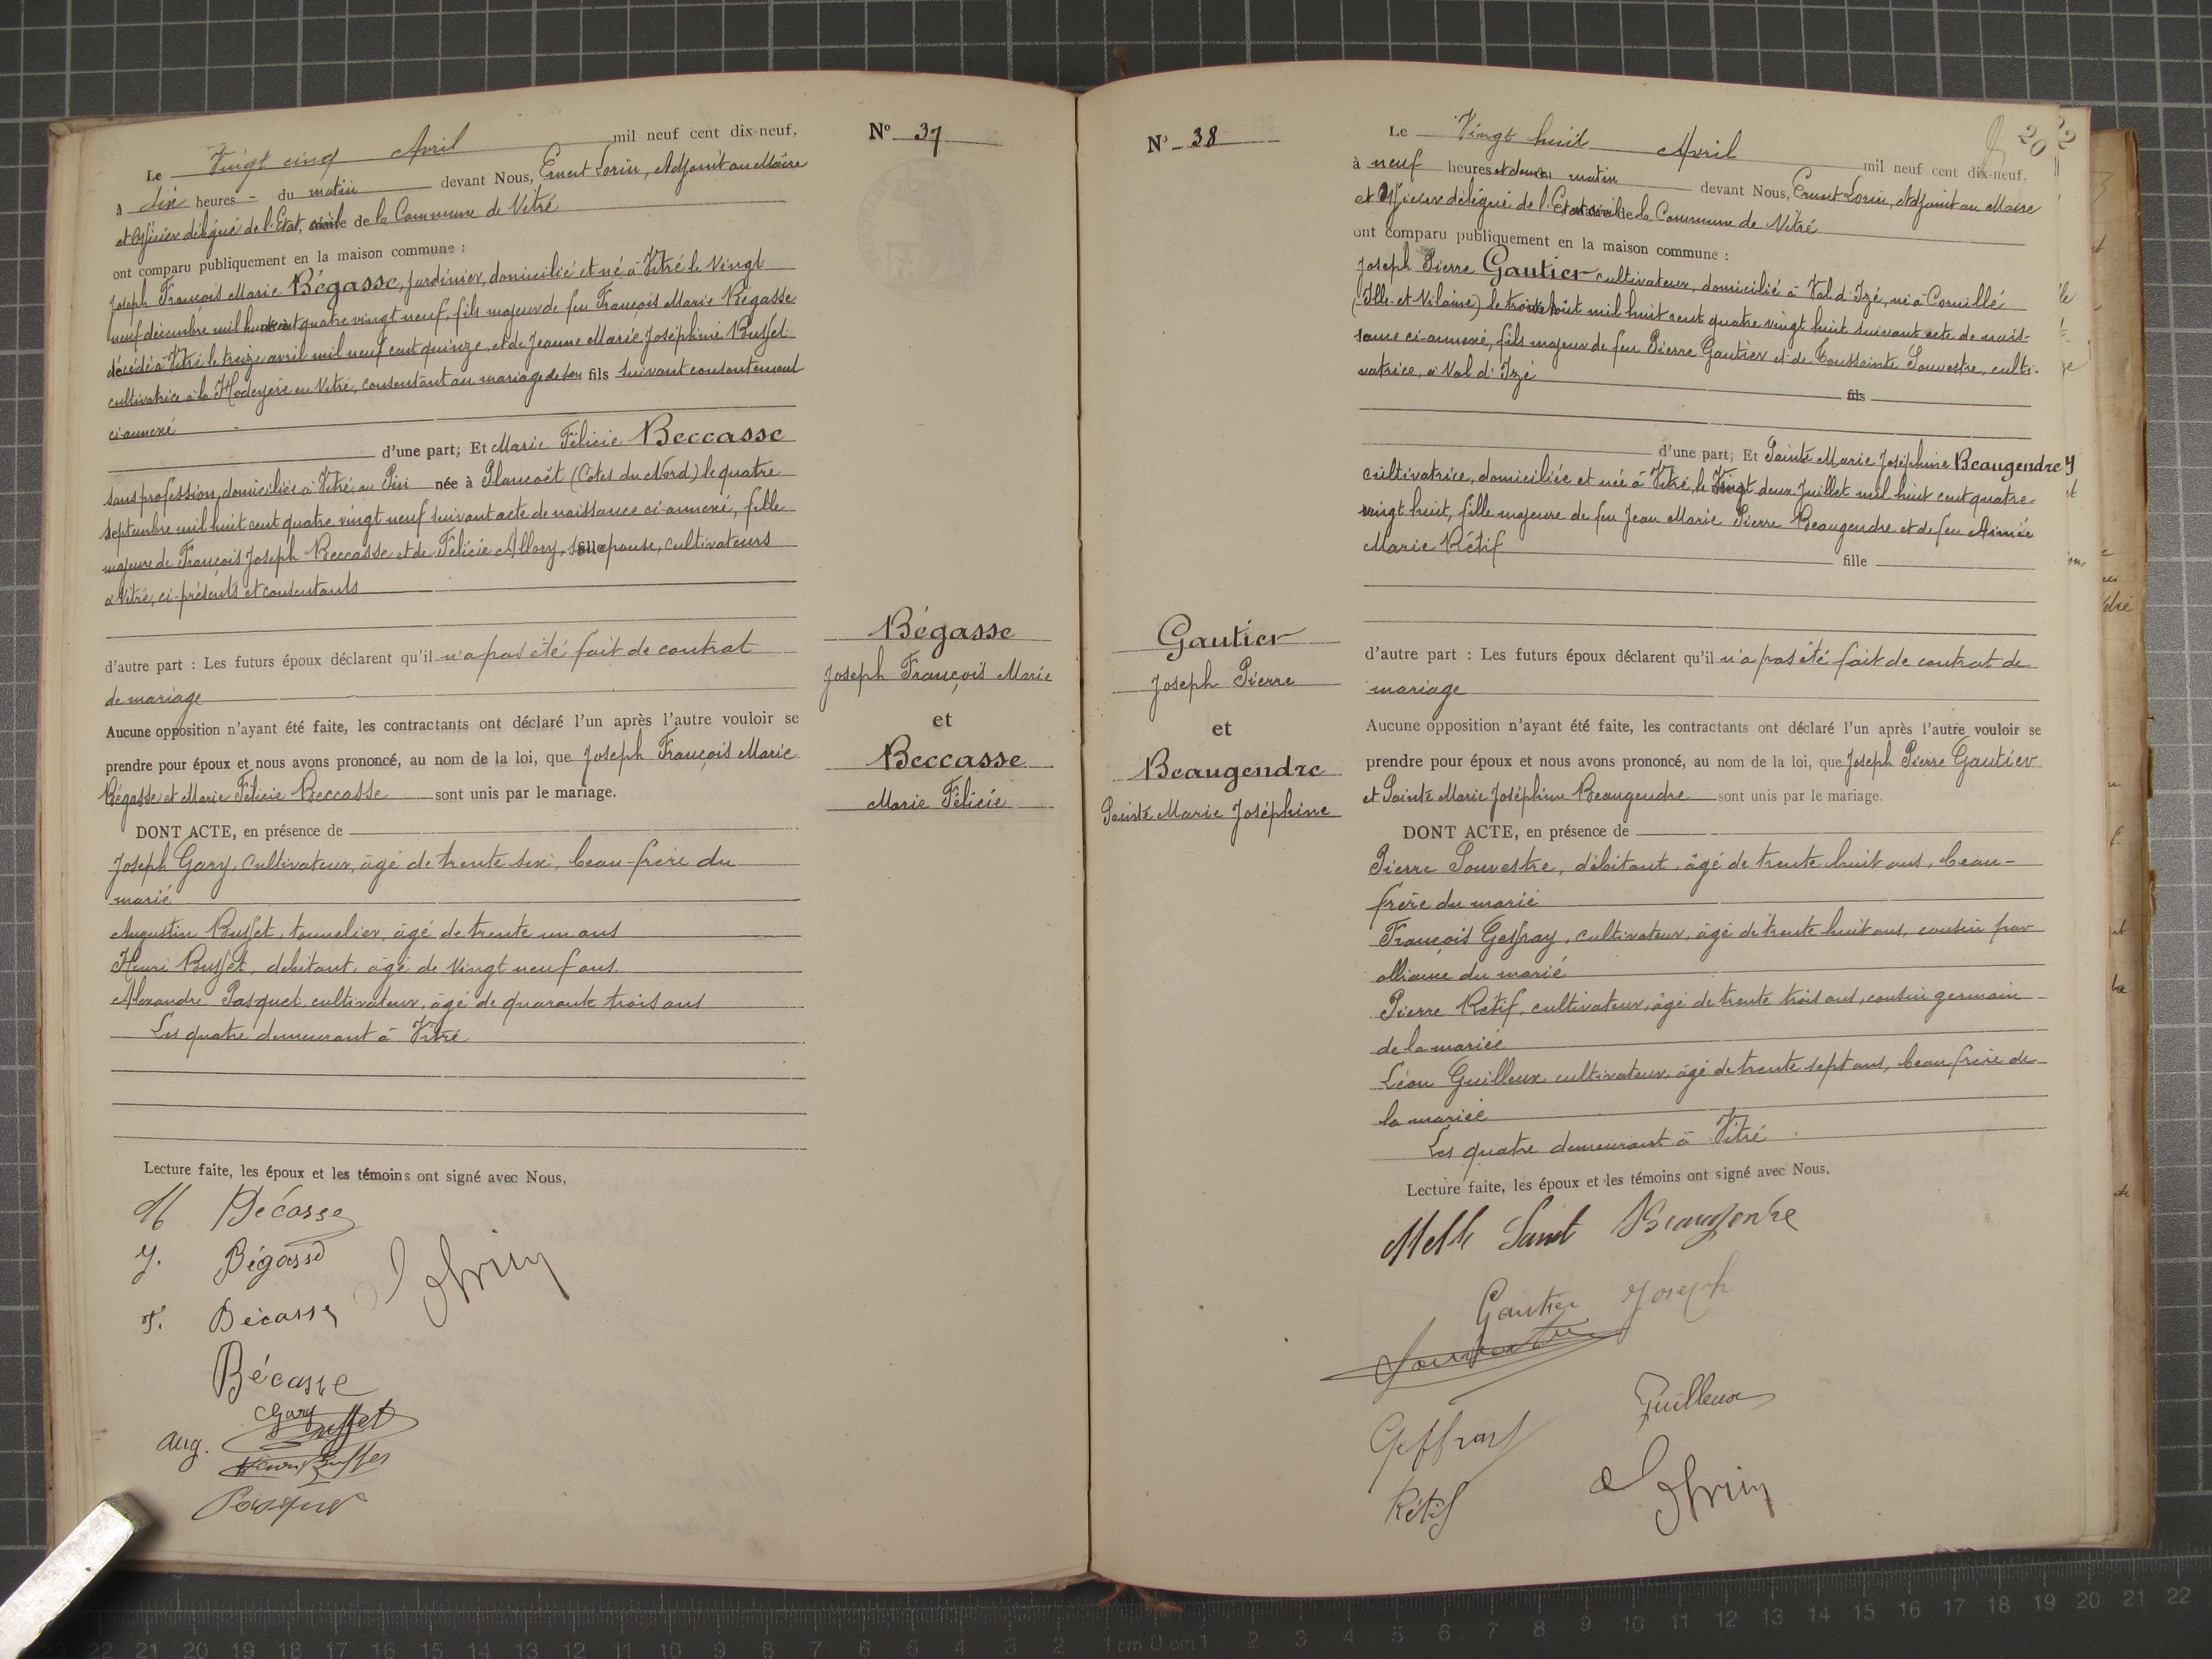 Le Vingt cinq Avril mil neuf cent dix-neuf,
à dix heures - du matin devant Nous, Ernest Lorin, Adjoint au Maire
et Officier délégué de l'Etat civil de la Commune de Vitré
ont comparu publiquement en la maison commune :
Joseph François Marie Bégasse, Jardinier, domicilié et né à Vitré le Vingt
neuf décembre mil huit cent quatre vingt neuf, fils majeur de feu François Marie Bégasse
décédé à Vitré le treize avril mil neuf cent quinze, et de Jeanne Marie Joséphine Buffet
cultivatrice à la Hodeyère en Vitré, consentant au mariage de son fils suivant consentement
ci-annexé
d'une part; Et Marie Félicie Beccasse
sans profession, domiciliée à Vitré, au Pin née à Plancoët (Côtes du Nord) le quatre
septembre mil huit cent quatre vingt neuf suivant acte de naissance ci-annexé, fille
majeure de François Joseph Beccasse et de Félicie Allory, son épouse, cultivateurs
à Vitré, ci-présents et consentants
d'autre part : Les futurs époux déclarent qu'il n'a pas été fait de contrat
de mariage
Aucune opposition n'ayant été faite, les contractants ont déclaré l'un après l'autre vouloir se
prendre pour époux et nous avons prononcé, au nom de la loi, que Joseph François Marie
Bégasse et Marie Félicie Beccasse sont unis par le mariage.
DONT ACTE, en présence de
Joseph Gary, cultivateur, âgé de trente six, beau-frère du
marié
Augustin Buffet, tonnelier, âgé de trente un ans
Henri Buffet, débitant, âgé de vingt neuf ans
Alexandre Pasquet, cultivateur, âgé de quarante trois ans
Les quatre demeurant à Vitré
Lecture faite, les époux et les témoins ont signé avec Nous,
M Bécasse
J. Bégasse
Lorin
F. Bécasse
Bécasse
Gary
Aug. Buffet
Henri Buffet
Pasquet
N° 37
Bégasse
Joseph François Marie
et
Beccasse
Marie Félicie
N° 38
Gautier
Joseph Pierre
et
Beaugendre
Sainte Marie Joséphine
20
Le Vingt huit Avril mil neuf cent dix-neuf.
à neuf heures et demie du matin devant Nous, Ernest Lorin, Adjoint au Maire
et Officier délégué de l'Etat civil de la Commune de Vitré
ont comparu publiquement en la maison commune :
Joseph Pierre Gautier cultivateur, domicilié à Val d'Izé, né à Cornillé
(Ille-et-Vilaine) le trois Août mil huit cent quatre vingt huit suivant acte de nais-
sance ci-annexé, fils majeur de feu Pierre Gautier et de Toussainte Souvestre, culti-
vatrice, à Val d'Izé
fils
d'une part; Et Sainte Marie Joséphine Beaugendre
cultivatrice, domiciliée et née à Vitré, le Vingt deux Juillet mil huit cent quatre-
vingt huit, fille majeure de feu Jean Marie Pierre Beaugendre et de feu Aimée
Marie Rétif
fille
d'autre part : Les futurs époux déclarent qu'il n'a pas été fait de contrat de
mariage
Aucune opposition n'ayant été faite, les contractants ont déclaré l'un après l'autre vouloir se
prendre pour époux et nous avons prononcé, au nom de la loi, que Joseph Pierre Gautier
et Sainte Marie Joséphine Beaugendre sont unis par le mariage.
DONT ACTE, en présence de
Pierre Souvestre, débitant, âgé de trente huit ans, beau-
frère du marié
François Geffray, cultivateur, âgé de trente huit ans, cousin par
alliance du marié
Pierre Rétif, cultivateur, âgé de trente trois ans, cousin germain
de la mariée
Léon Guilleux cultivateur, âgé de trente sept ans, beau frère de
la mariée
Les quatre demeurant à Vitré
Lecture faite, les époux et les témoins ont signé avec Nous,
Melle Beaugendre
Gautier Joseph
Souvestre
Guilleux
Geffray
Rétif
Lorin
23 22 21 20 19 18 17 16 15 14 13 12 11 10 9 8 7 6 5 4 3 2 1 cm 0 cm 1 2 3 4 5 6 7 8 9 10 11 12 13 14 15 16 17 18 19 20 21 22